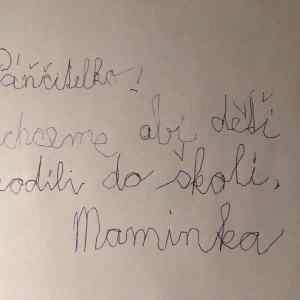 Páňčitelko!
chceme abi děťi
odili do školi,
Maminka